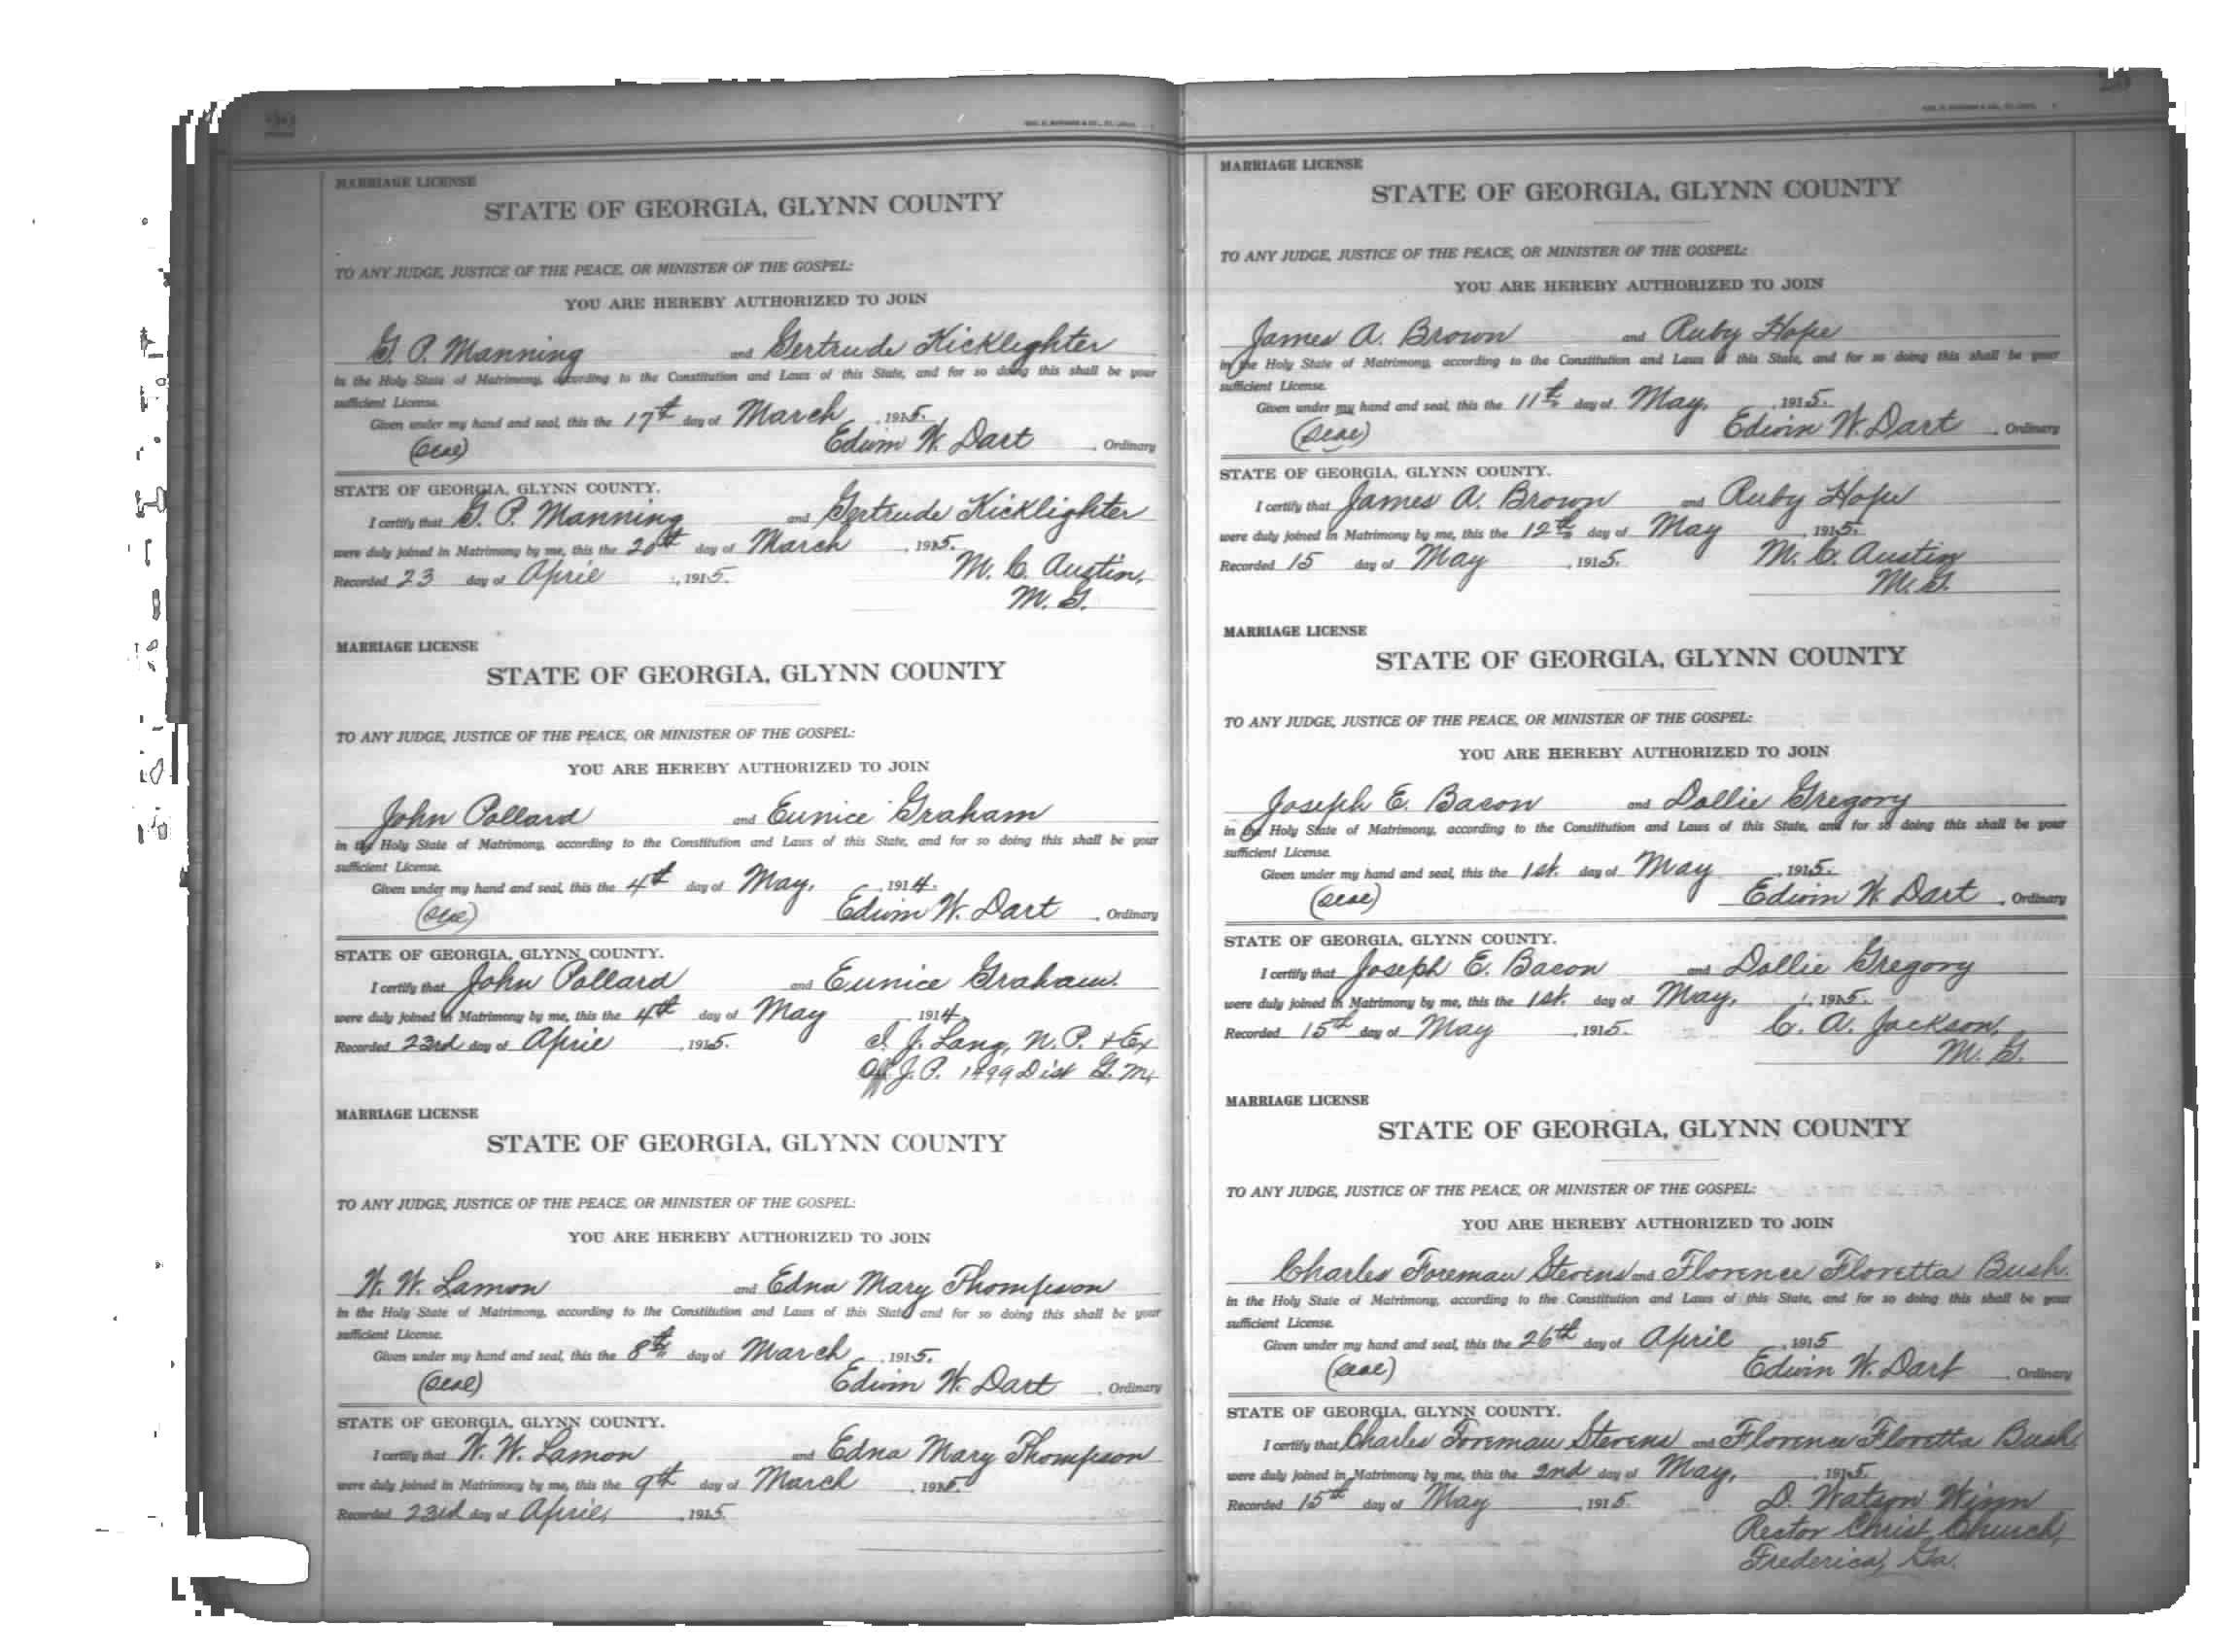 MARRIAGE LICENSE
STATE OF GEORGIA, GLYNN COUNTY
TO ANY JUDGE, JUSTICE OF THE PEACE, OR MINISTER OF THE GOSPEL:
YOU ARE HEREBY AUTHORIZED TO JOIN
G. P. Manning and Gertrude Kicklighter
in the Holy State of Matrimony, according to the Constitution and Laws of this State, and for so doing this shall be your
sufficient License.
Given under my hand and seal, this the 17th day of March, 1915.
(Seal) Edwin W. Dart, Ordinary
STATE OF GEORGIA, GLYNN COUNTY.
I certify that G. P. Manning and Gertrude Kicklighter
were duly joined in Matrimony by me, this the 20th day of March, 1915.
Recorded 23 day of April, 1915. M. C. Austin,
M. G.
MARRIAGE LICENSE
STATE OF GEORGIA, GLYNN COUNTY
TO ANY JUDGE, JUSTICE OF THE PEACE, OR MINISTER OF THE GOSPEL:
YOU ARE HEREBY AUTHORIZED TO JOIN
John Pollard and Eunice Graham
in the Holy State of Matrimony, according to the Constitution and Laws of this State, and for so doing this shall be your
sufficient License.
Given under my hand and seal, this the 4th day of May, 1914.
(Seal) Edwin W. Dart, Ordinary
STATE OF GEORGIA, GLYNN COUNTY.
I certify that John Pollard and Eunice Graham.
were duly joined in Matrimony by me, this the 4th day of May 1914.
Recorded 23rd day of April, 1915. J. Lang, N. P. & Ex
Off. J. P. 1499 Dist G. M.
MARRIAGE LICENSE
STATE OF GEORGIA, GLYNN COUNTY
TO ANY JUDGE, JUSTICE OF THE PEACE, OR MINISTER OF THE GOSPEL:
YOU ARE HEREBY AUTHORIZED TO JOIN
W. W. Lamon and Edna Mary Thompson
in the Holy State of Matrimony, according to the Constitution and Laws of this State, and for so doing this shall be your
sufficient License.
Given under my hand and seal, this the 8th day of March, 1915.
(Seal) Edwin W. Dart, Ordinary
STATE OF GEORGIA, GLYNN COUNTY.
I certify that W. W. Lamon and Edna Mary Thompson
were duly joined in Matrimony by me, this the 9th day of March, 1915.
Recorded 23rd day of April, 1915.
MARRIAGE LICENSE
STATE OF GEORGIA, GLYNN COUNTY
TO ANY JUDGE, JUSTICE OF THE PEACE, OR MINISTER OF THE GOSPEL:
YOU ARE HEREBY AUTHORIZED TO JOIN
James A. Brown and Ruby Hope
in the Holy State of Matrimony, according to the Constitution and Laws of this State, and for so doing this shall be your
sufficient License.
Given under my hand and seal, this the 11th day of May, 1915.
(Seal) Edwin W. Dart, Ordinary
STATE OF GEORGIA, GLYNN COUNTY.
I certify that James A. Brown and Ruby Hope
were duly joined in Matrimony by me, this the 12th day of May, 1915.
Recorded 15 day of May, 1915. M. C. Austin
M. G.
MARRIAGE LICENSE
STATE OF GEORGIA, GLYNN COUNTY
TO ANY JUDGE, JUSTICE OF THE PEACE, OR MINISTER OF THE GOSPEL:
YOU ARE HEREBY AUTHORIZED TO JOIN
Joseph E. Bacon and Dollie Gregory
in the Holy State of Matrimony, according to the Constitution and Laws of this State, and for so doing this shall be your
sufficient License.
Given under my hand and seal, this the 1st. day of May, 1915.
(Seal) Edwin W. Dart, Ordinary
STATE OF GEORGIA, GLYNN COUNTY.
I certify that Joseph E. Bacon and Dollie Gregory
were duly joined in Matrimony by me, this the 1st. day of May, 1915.
Recorded 15th day of May, 1915. C. A. Jackson,
M. G.
MARRIAGE LICENSE
STATE OF GEORGIA, GLYNN COUNTY
TO ANY JUDGE, JUSTICE OF THE PEACE, OR MINISTER OF THE GOSPEL:
YOU ARE HEREBY AUTHORIZED TO JOIN
Charles Foreman Stevens and Florence Floretta Bush.
in the Holy State of Matrimony, according to the Constitution and Laws of this State, and for so doing this shall be your
sufficient License.
Given under my hand and seal, this the 26th day of April, 1915
(Seal) Edwin W. Dart, Ordinary
STATE OF GEORGIA, GLYNN COUNTY.
I certify that Charles Foreman Stevens and Florence Floretta Bush
were duly joined in Matrimony by me, this the 2nd day of May, 1915.
Recorded 15th day of May, 1915. D. Watson Winn
Rector Christ Church,
Frederica, Ga.